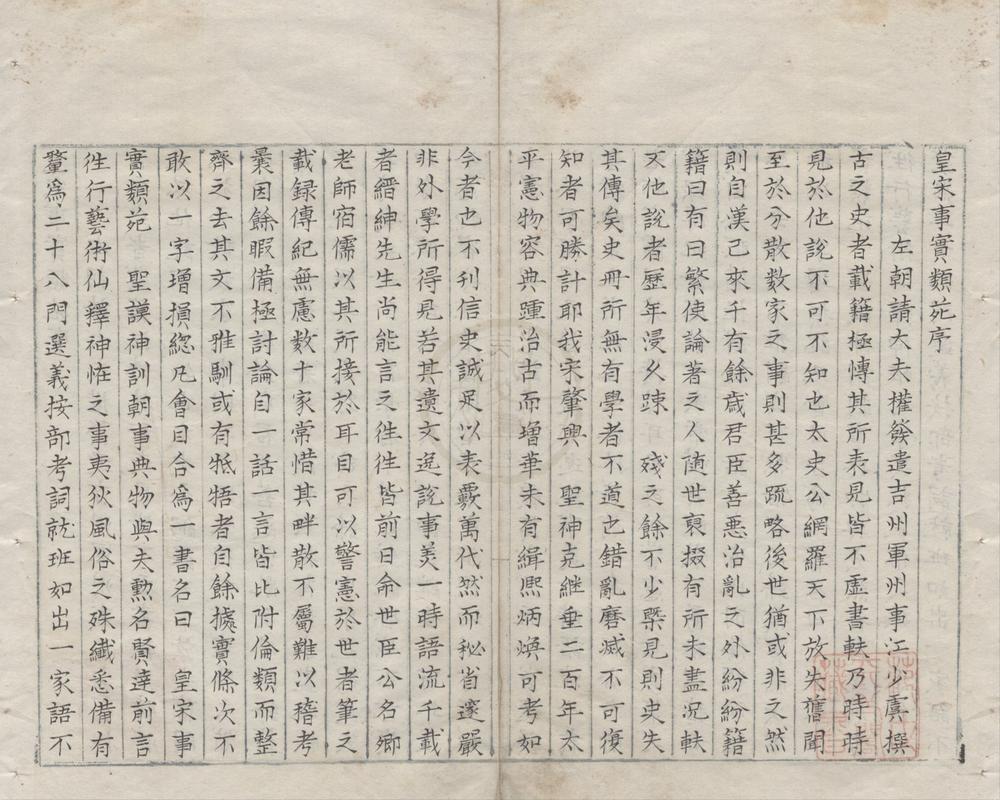 皇宋事實類苑序
左朝請大夫權發遣吉州軍州事江少虞撰
古之史者載籍極慱其所表見皆不虛書軼乃時時
見於他說不可不知也太史公網羅天下放失舊聞
至於分散數家之事則甚多疏略後世猶或非之然
則自漢已來千有餘歲君臣善惡治亂之外紛紛籍
籍曰有曰繁使論著之人随世裒掇有所未盡况軼
又他說者歷年浸久踈殘之餘不少槩見則史失
其傳矣史冊所無有學者不道也錯亂磨滅不可復
知者可勝計耶我宋肇興 聖神克継垂二百年太
平憲物容典踵治古而增華未有緝熈炳煥可考如
今者也不刊信史誠足以表覈萬代然而秘省邃嚴
非外學所得見若其遺文逸說事美一時語流千載
者縉紳先生尚能言之徃徃皆前日命世臣公名卿
老師宿儒以其所接於耳目可以警憲於世者筆之
載録傳紀無慮數十家常惜其畔散不屬難以稽考
曩因餘暇備極討論自一話一言皆比附倫類而整
齊之去其文不雅馴或有牴牾者自餘據實條次不
敢以一字增損緫凡會目合爲一書名曰 皇宋事
實類苑 聖謨神訓朝事典物與夫勲名賢達前言
徃行藝術仙釋神恠之事夷狄風俗之殊纎悉備有
釐爲二十八門選義按部考詞就班如出一家語不